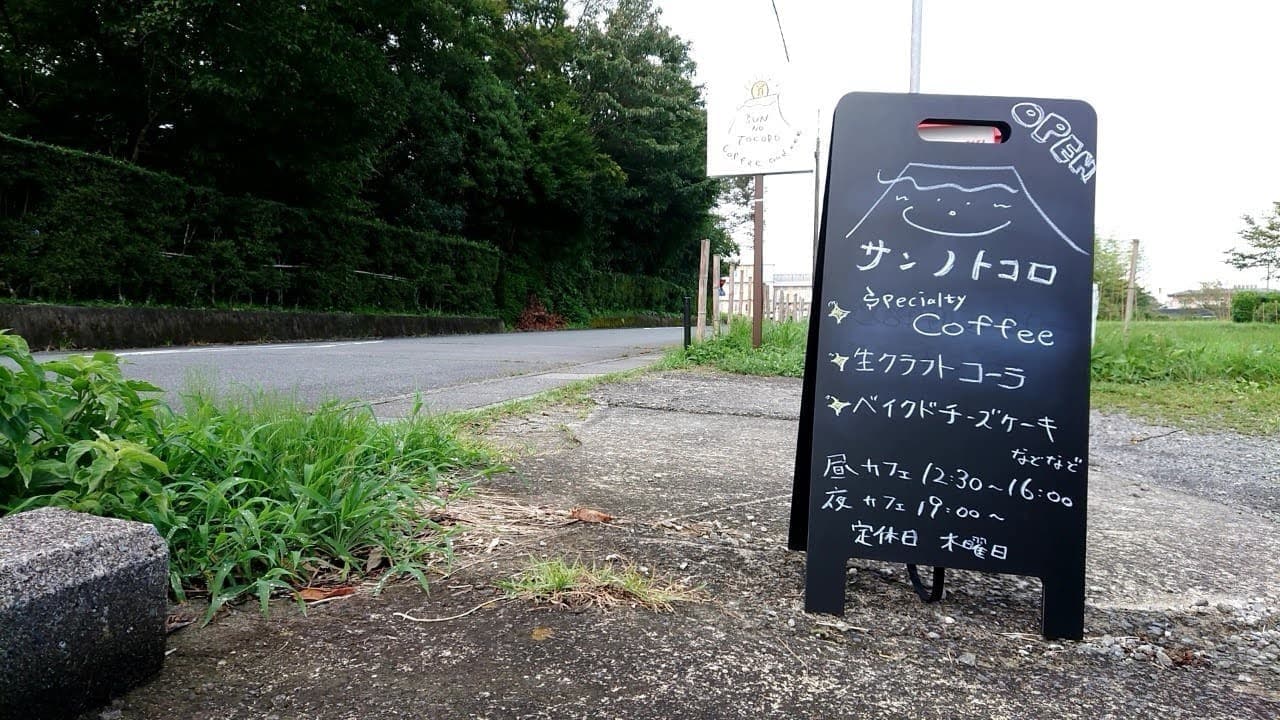 SUN
NO
TOCORO
Coffee and
OPEN
サンノトコロ
Specialty
Coffee
生クラフトコーラ
ベイクドチーズケーキ
などなど
昼カフェ 12:30~16:00
夜カフェ 19:00~
定休日 木曜日